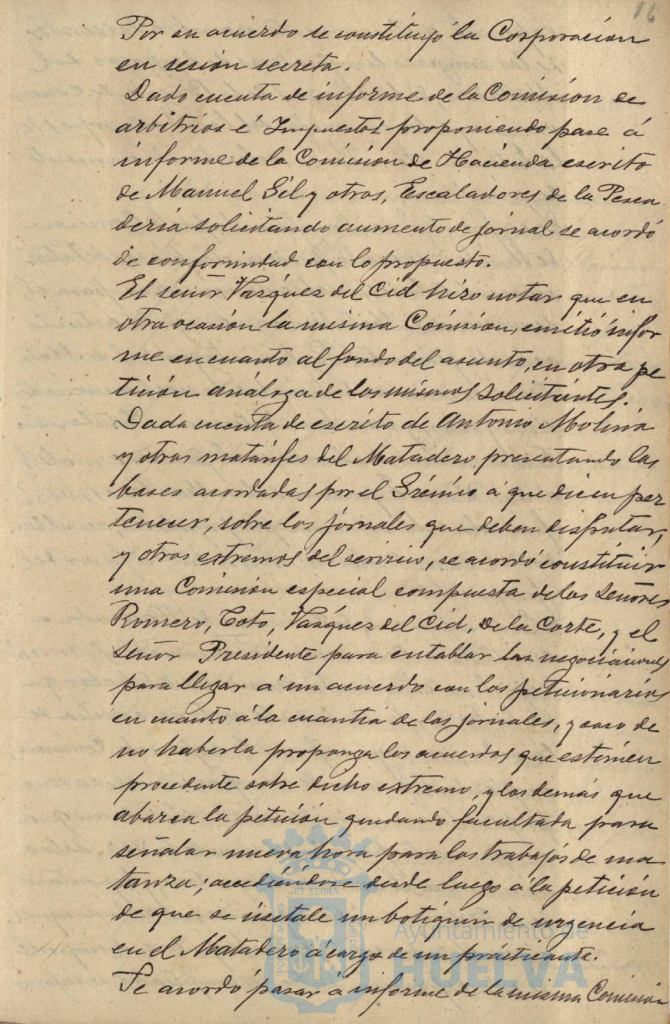 16
Por su acuerdo se constituyó la Corporación
en sesión secreta.
Dado cuenta de informe de la Comision de
arbitrios é Impuestos proponiendo pase á
informe de la Comision de Hacienda escrito
de Manuel Gil y otros, Escaladores de la Pesca
deria solicitando aumento de jornal se acordó
de conformidad con lo propuesto.
El señor Vazquez del Cid hizo notar que en
otra ocasión la misma Comision, emitió infor
me en cuanto al fondo del asunto, en otra pe
tición análoga de los mismos solicitantes.
Dada cuenta de escrito de Antonio Molina
y otros matarifes del Matadero presentando las
bases acordadas por el Grémio á que dicen per
tenecer, sobre los jornales que deben disfrutar,
y otros extremos del servicio, se acordó constituir
una Comision especial compuesta de los Señores
Romero, Coto, Vazquez del Cid, De la Corte, y el
Señor Presidente para entablar las negociaciones
para llegar á un acuerdo con los peticionarios
en cuanto á la cuantia de los jornales, y caso de
no haberla proponga los acuerdos que estimen
procedente sobre dicho extremo, y los demás que
abarca la petición quedando facultada para
señalar nueva hora para los trabajos de ma
tanza; accediéndose desde luego á la petición
de que se instale un botiquin de urgencia
en el Matadero á cargo de un prácticante.
Se acordó pasar á informe de la misma Comision
Ayuntamiento de
HUELVA